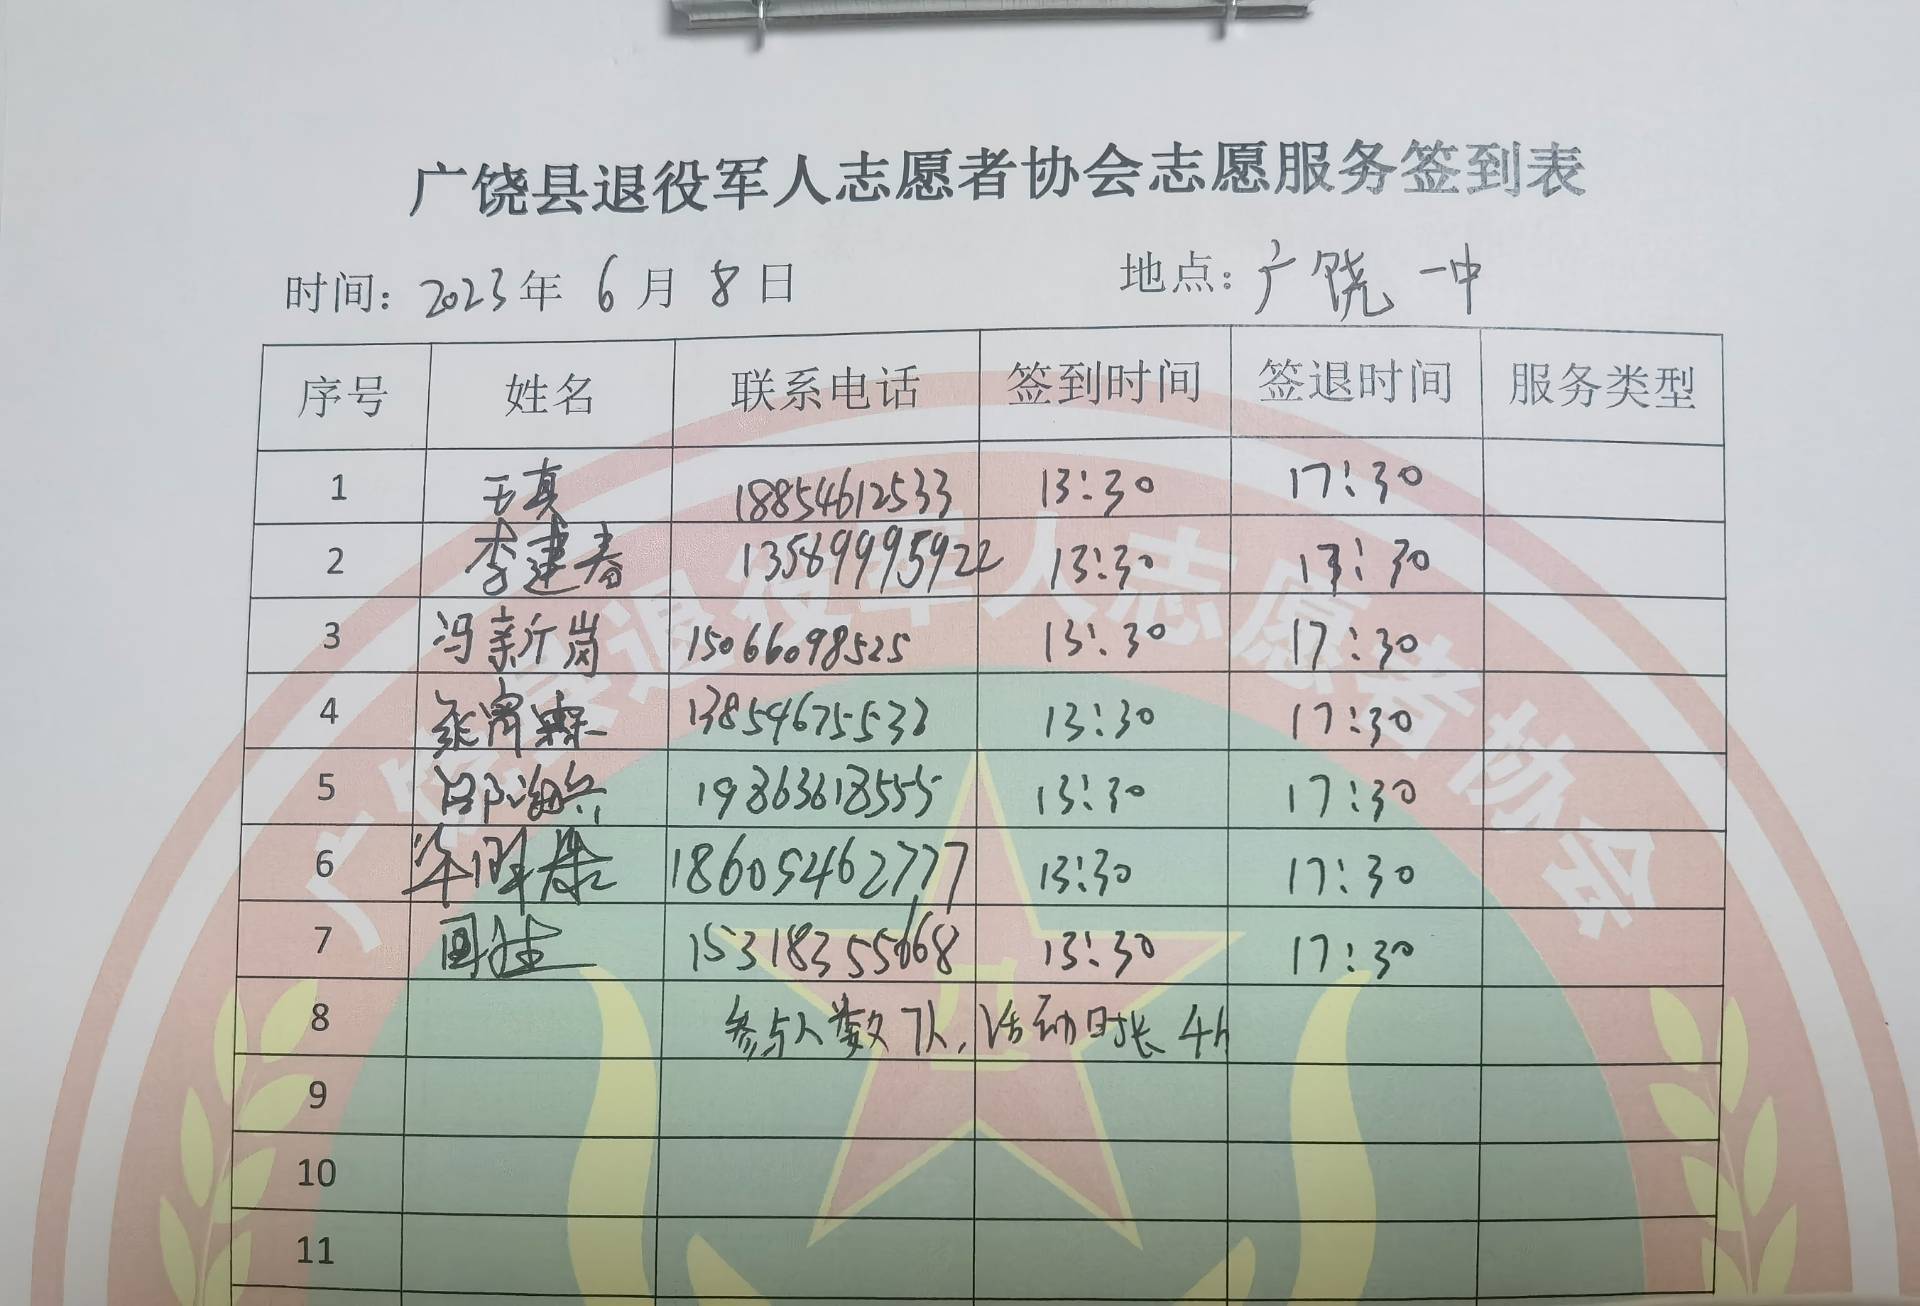 广饶县退役军人志愿者协会志愿服务签到表
时间: 2023年 6月 8日 地点: 广饶一中
序号 姓名 联系电话 签到时间 签退时间 服务类型
1 王真 18854612533 13:30 17:30
2 李建春 13589995922 13:30 17:30
3 冯新岗 15066098525 13:30 17:30
4 13854675533 13:30 17:30
5 19863618555 13:30 17:30
6 18605462777 13:30 17:30
7 15318355668 13:30 17:30
8 参与人数7人,活动时长4h
9
10
11
广饶县退役军人志愿者协会